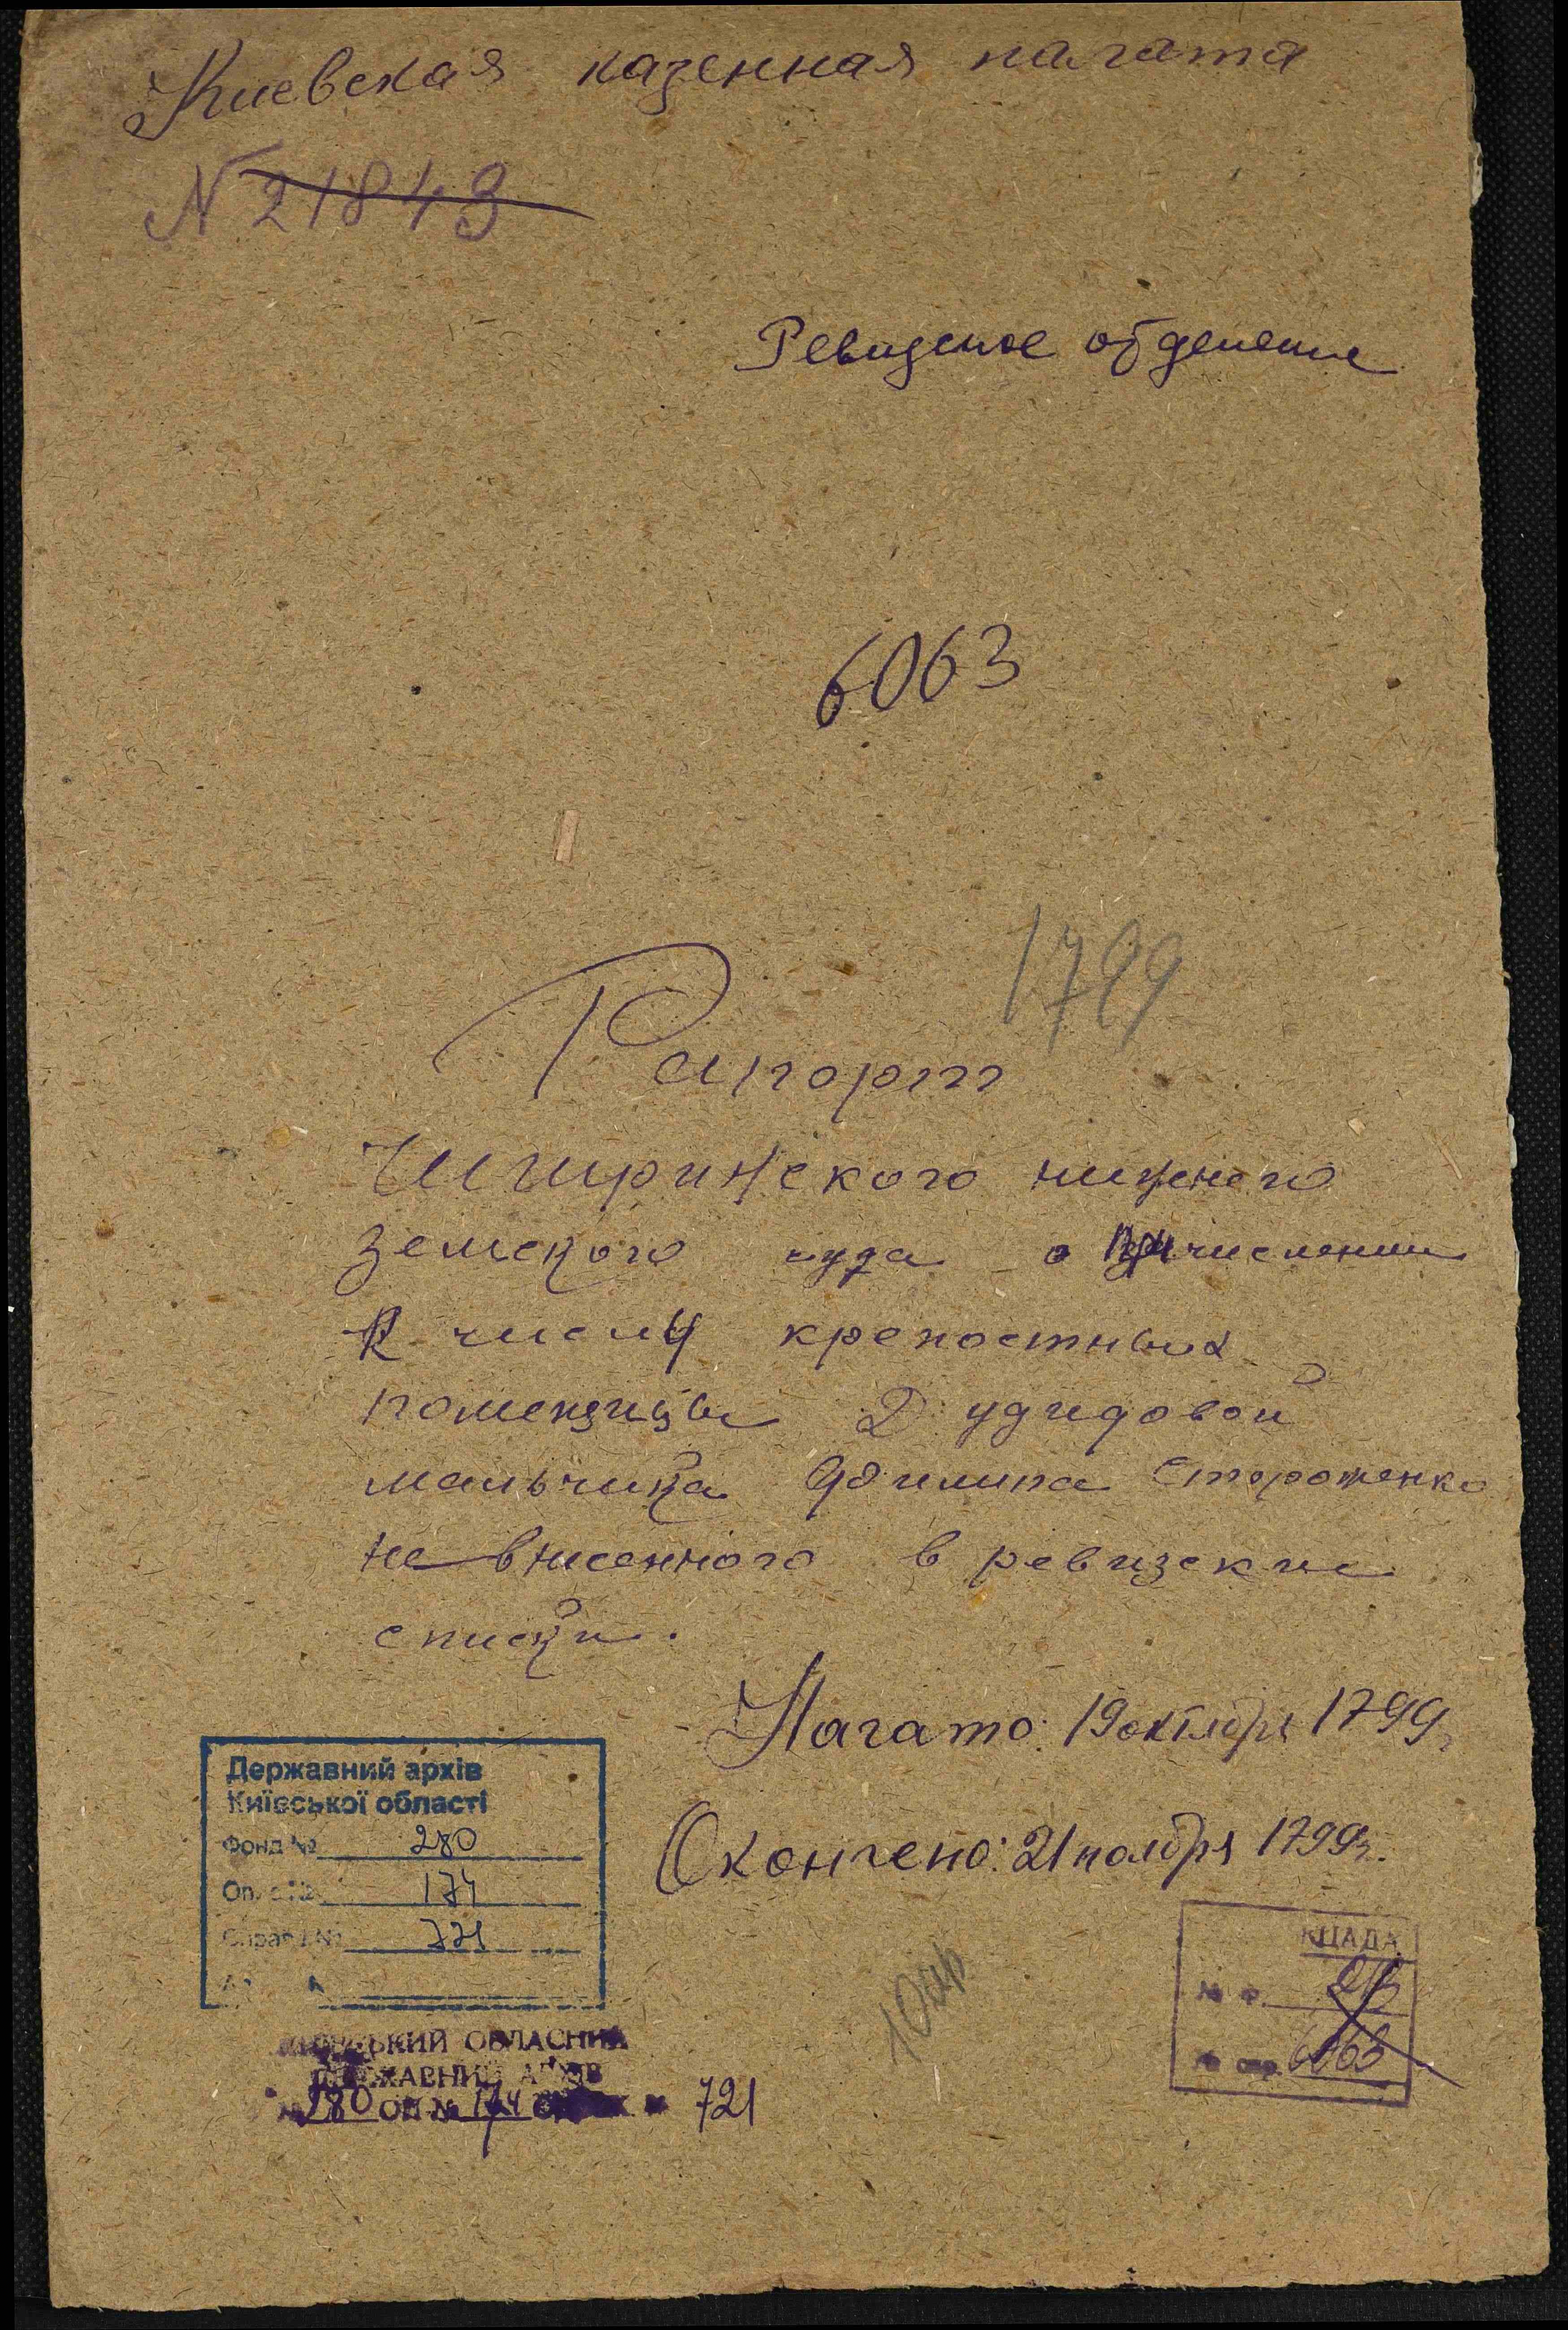 Киевская казенная палата
N 21843
Ревизское отделение
6063
1799
Рапорт
Чигиринского нижнего
земского суда о причислении
к числу крепостных
помещицы Дудидовой
мальчика Филипа Стороженко
не внесенного в ревизские
списки.
Начато: 19 октября 1799 г.
Окончено: 21 ноября 1799 г.
Державний архів
Київської області
Фонд № 280
Опис № 174
Справа № 721
КЦАДА
№ ф.
№ спр. 6063
КИЇВСЬКИЙ ОБЛАСНИЙ
ДЕРЖАВНИЙ АРХІВ
280 ОП № 174 721